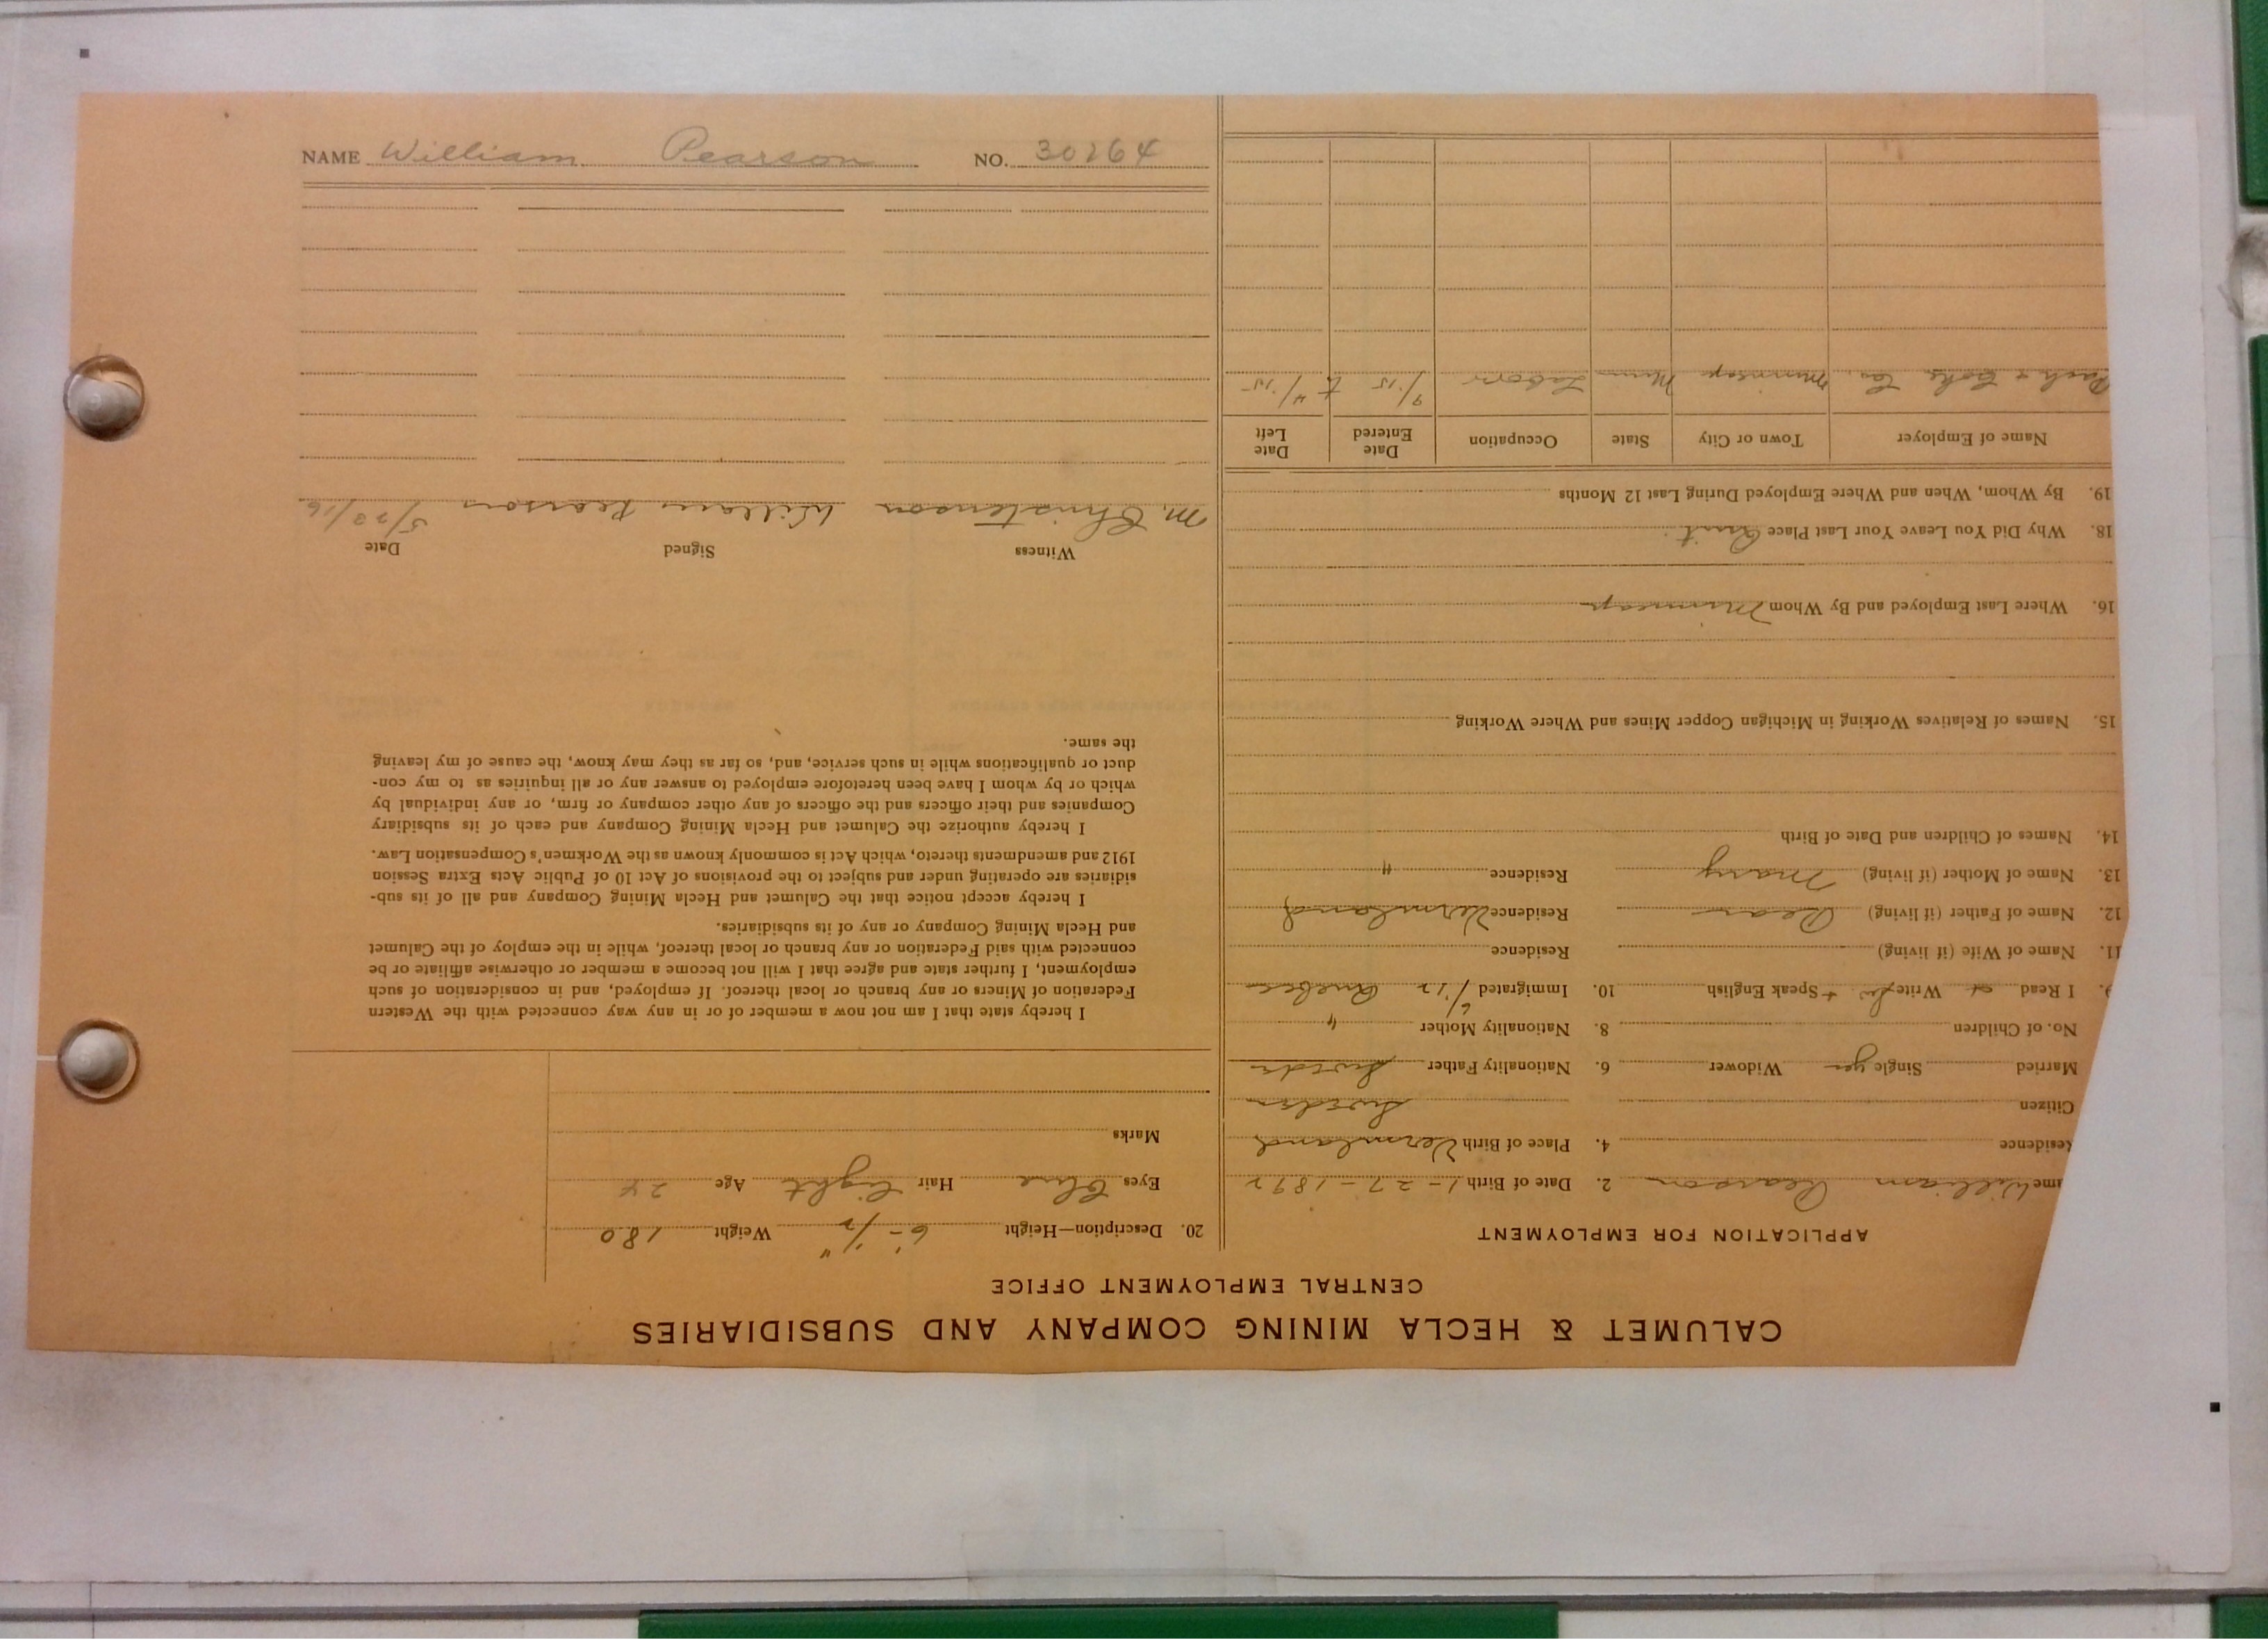 CALUMET & HECLA MINING COMPANY AND SUBSIDIARIES
CENTRAL EMPLOYMENT OFFICE
APPLICATION FOR EMPLOYMENT
ame William Pearson 2. Date of Birth 1-27-1892
Residence 4. Place of Birth Vermland
Citizen Sweden
Married Single yes Widower 6. Nationality Father Swede
No. of Children 8. Nationality Mother "
9. I Read Write Yes + Speak English 10. Immigrated 6/12 Quebec
11. Name of Wife (if living) Residence
12. Name of Father (if living) Pear Residence Vermland
13. Name of Mother (if living) Mary Residence "
14. Names of Children and Date of Birth
15. Names of Relatives Working in Michigan Copper Mines and Where Working
16. Where Last Employed and By Whom
18. Why Did You Leave Your Last Place Quit
19. By Whom, When and Where Employed During Last 12 Months
Name of Employer Town or City State Occupation Date Entered Date Left
Co. Minn Labor 9/15 11/15
20. Description—Height 6'-1/2" Weight 180
Eyes Blue Hair light Age 24
Marks
I hereby state that I am not now a member of or in any way connected with the Western
Federation of Miners or any branch or local thereof. If employed, and in consideration of such
employment, I further state and agree that I will not become a member or otherwise affiliate or be
connected with said Federation or any branch or local thereof, while in the employ of the Calumet
and Hecla Mining Company or any of its subsidiaries.
I hereby accept notice that the Calumet and Hecla Mining Company and all of its sub-
sidiaries are operating under and subject to the provisions of Act 10 of Public Acts Extra Session
1912 and amendments thereto, which Act is commonly known as the Workmen's Compensation Law.
I hereby authorize the Calumet and Hecla Mining Company and each of its subsidiary
Companies and their officers and the officers of any other company or firm, or any individual by
which or by whom I have been heretofore employed to answer any or all inquiries as to my con-
duct or qualifications while in such service, and, so far as they may know, the cause of my leaving
the same.
Witness Signed Date
M. Christenson William Pearson 5/23/16
NAME William Pearson NO. 30264